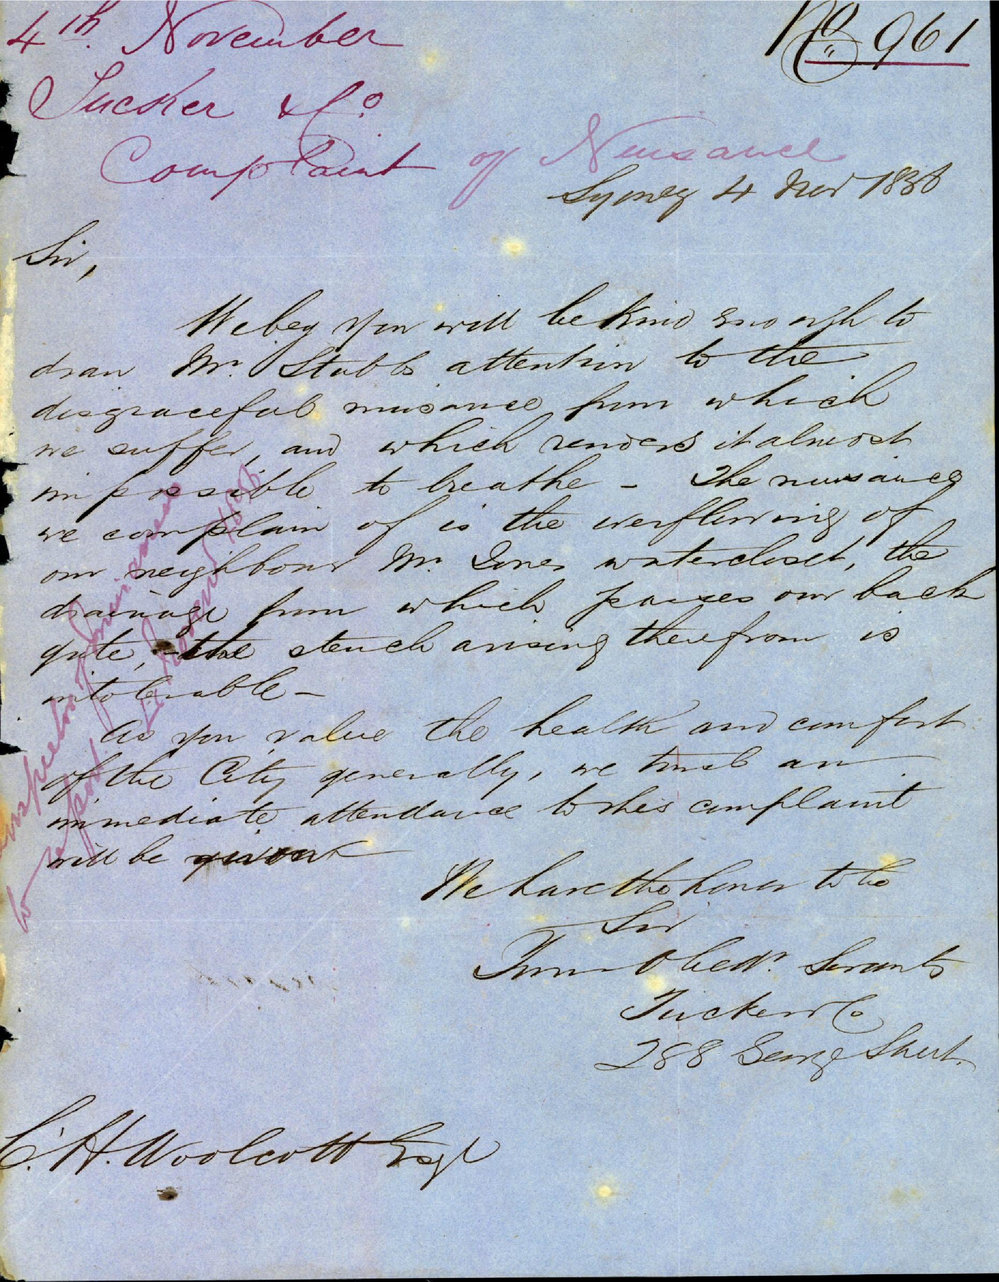 No 961
4th November
Tucker & Co
Complaint of Nuisance
Sydney 4 Nov 1856
Sir,
We beg you will be kind enough to
draw Mr. Stubbs attention to the
disgraceful nuisance from which
we suffer, and which renders it almost
impossible to breathe – The nuisance
we complain of is the overflowing of
our neighbour Mr. Jones watercloset, the
drainage from which passes our back
gate, the stench arising therefrom is
intolerable –
As you value the health and comfort
of the City generally, we trust an
immediate attendance to this complaint
will be given
We have the honor to be
Sir
Your Obedt. Servants
Tucker & Co
288 George Street.
C. H. Woolcott Esqr
Inspector of Nuisances
to report